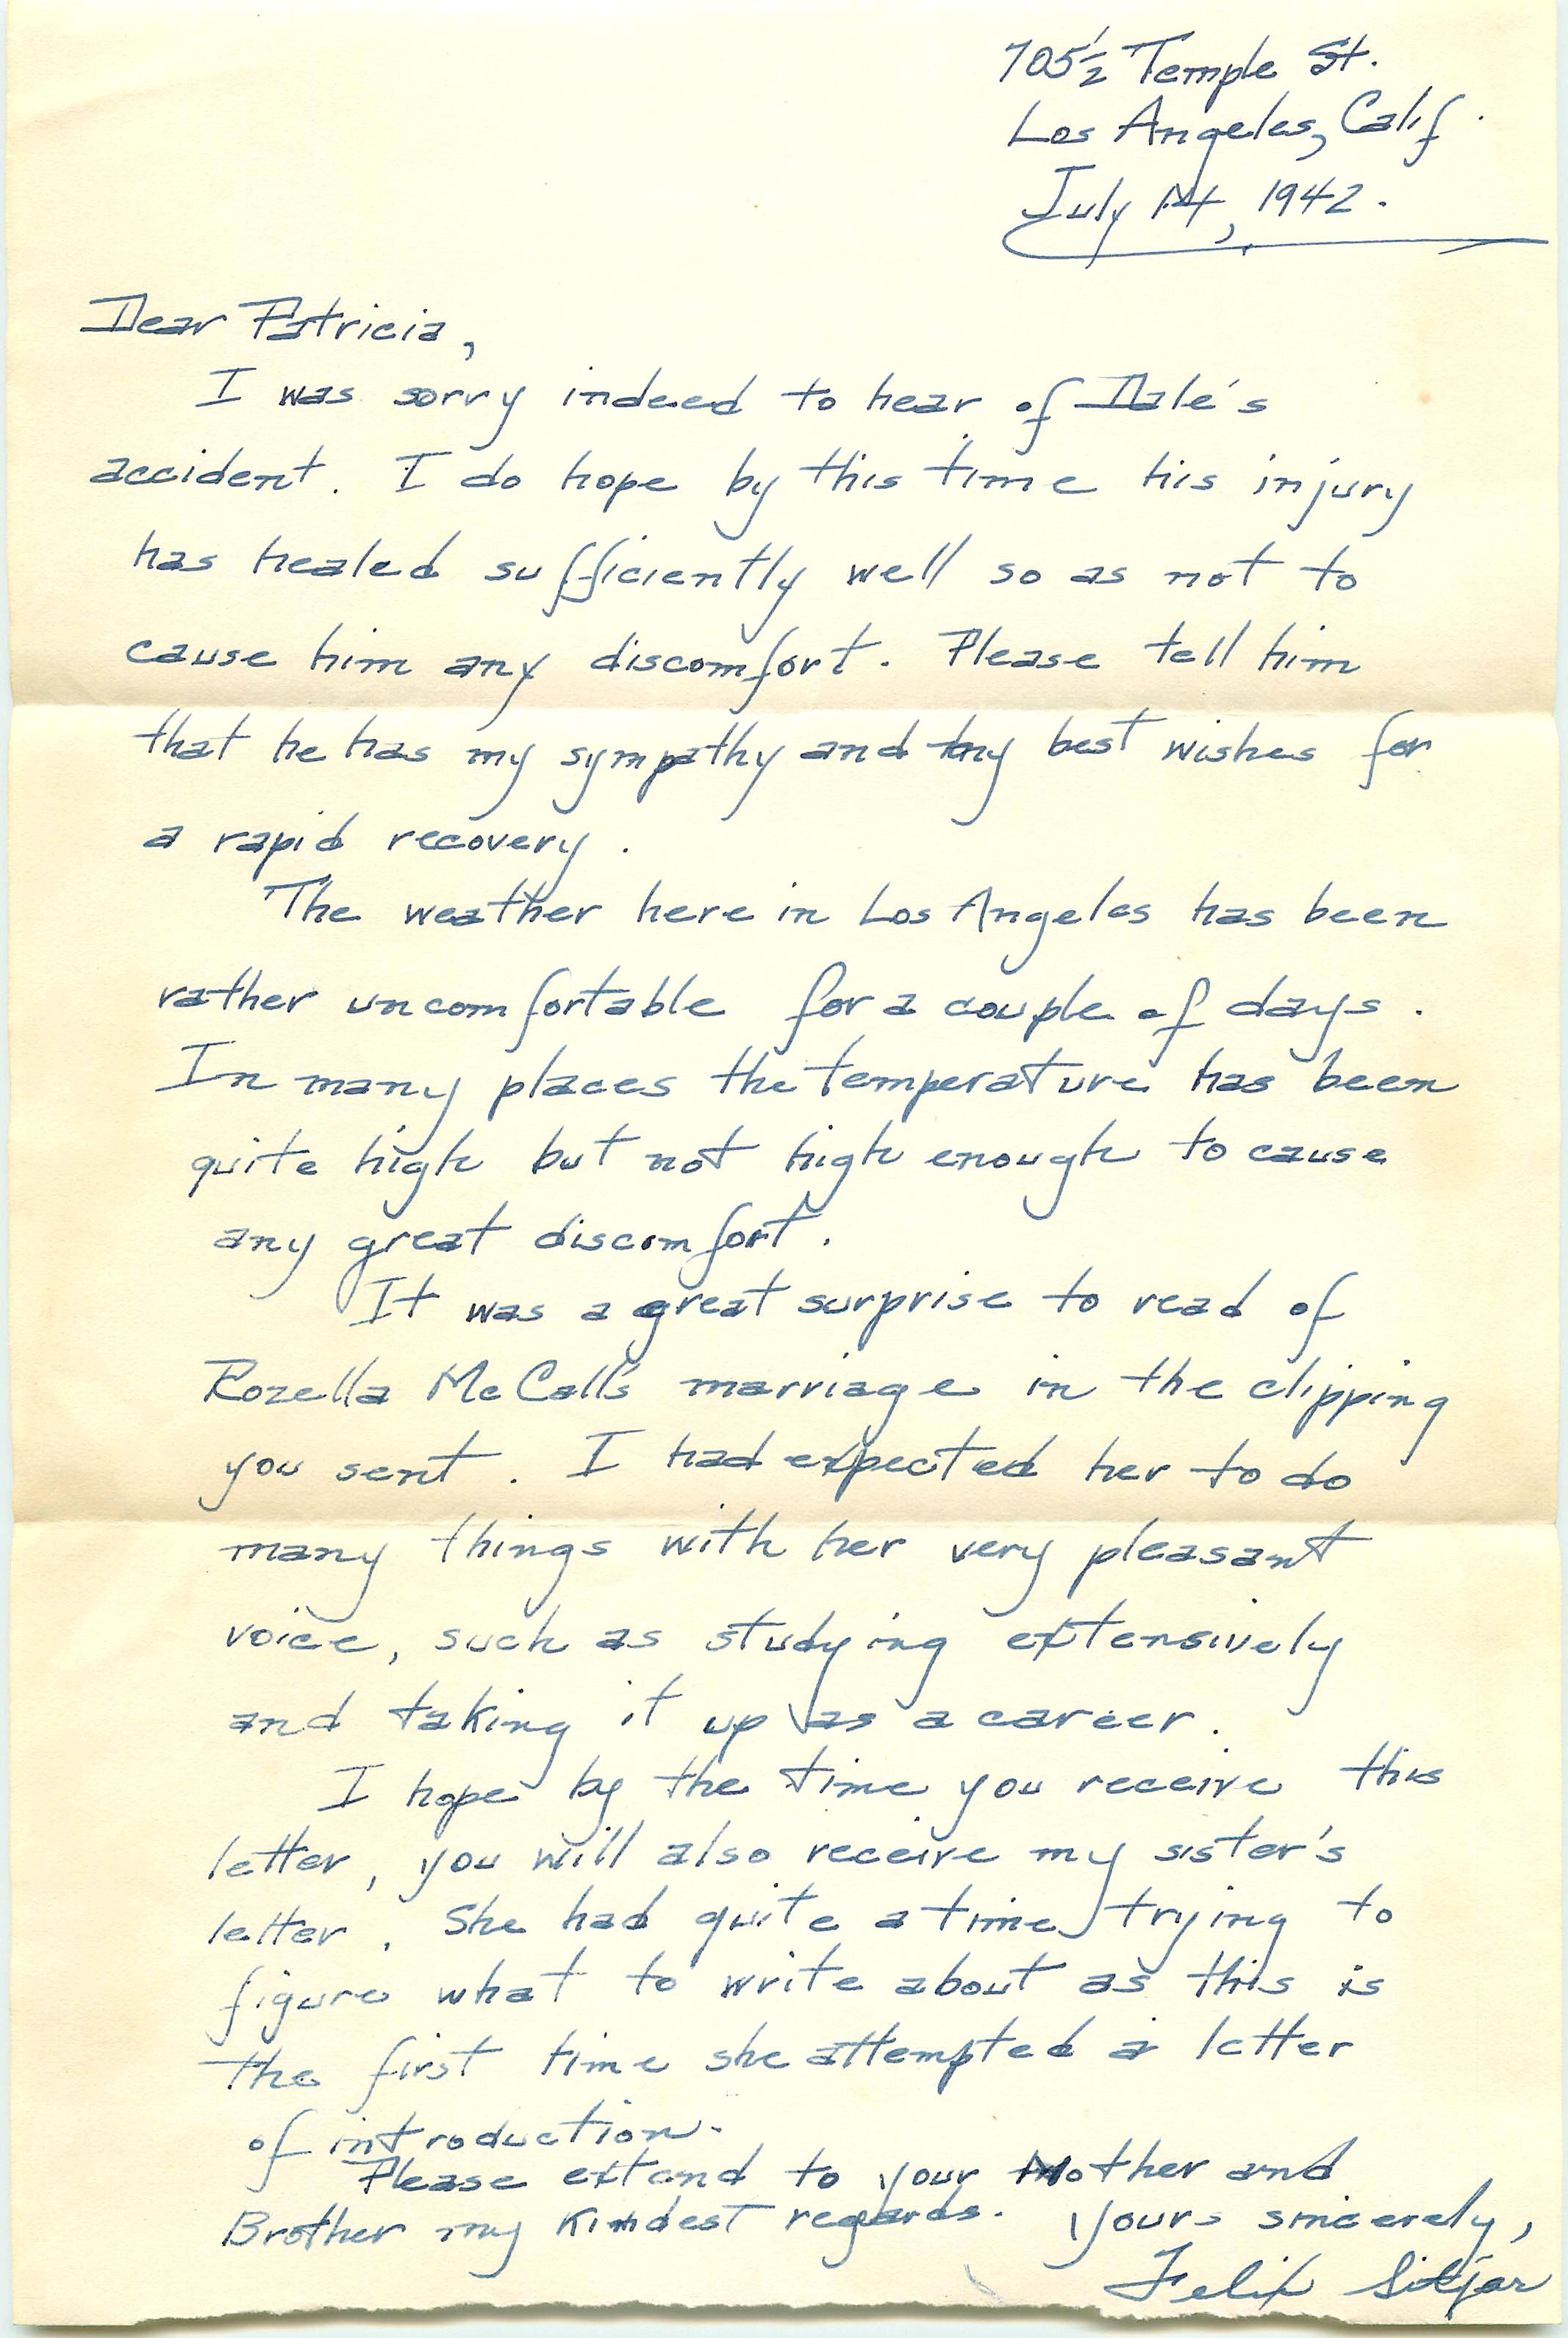 705½ Temple St.
Los Angeles, Calif.
July 14, 1942.
Dear Patricia,
I was sorry indeed to hear of Dale's
accident. I do hope by this time his injury
has healed sufficiently well so as not to
cause him any discomfort. Please tell him
that he has my sympathy and my best wishes for
a rapid recovery.
The weather here in Los Angeles has been
rather uncomfortable for a couple of days.
In many places the temperature has been
quite high but not high enough to cause
any great discomfort.
It was a great surprise to read of
Rozella McCall's marriage in the clipping
you sent. I had expected her to do
many things with her very pleasant
voice, such as studying extensively
and taking it up as a career.
I hope by the time you receive this
letter, you will also receive my sister's
letter. She had quite a time trying to
figure what to write about as this is
the first time she attempted a letter
of introduction.
Please extend to your Mother and
Brother my kindest regards. Yours sincerely,
Felix Sitjar